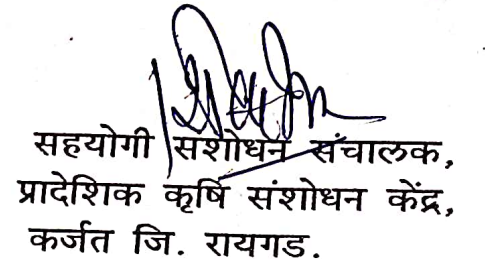 सहयोगी संशोधन संचालक,
प्रादेशिक कृषि संशोधन केंद्र,
कर्जत जि. रायगड.